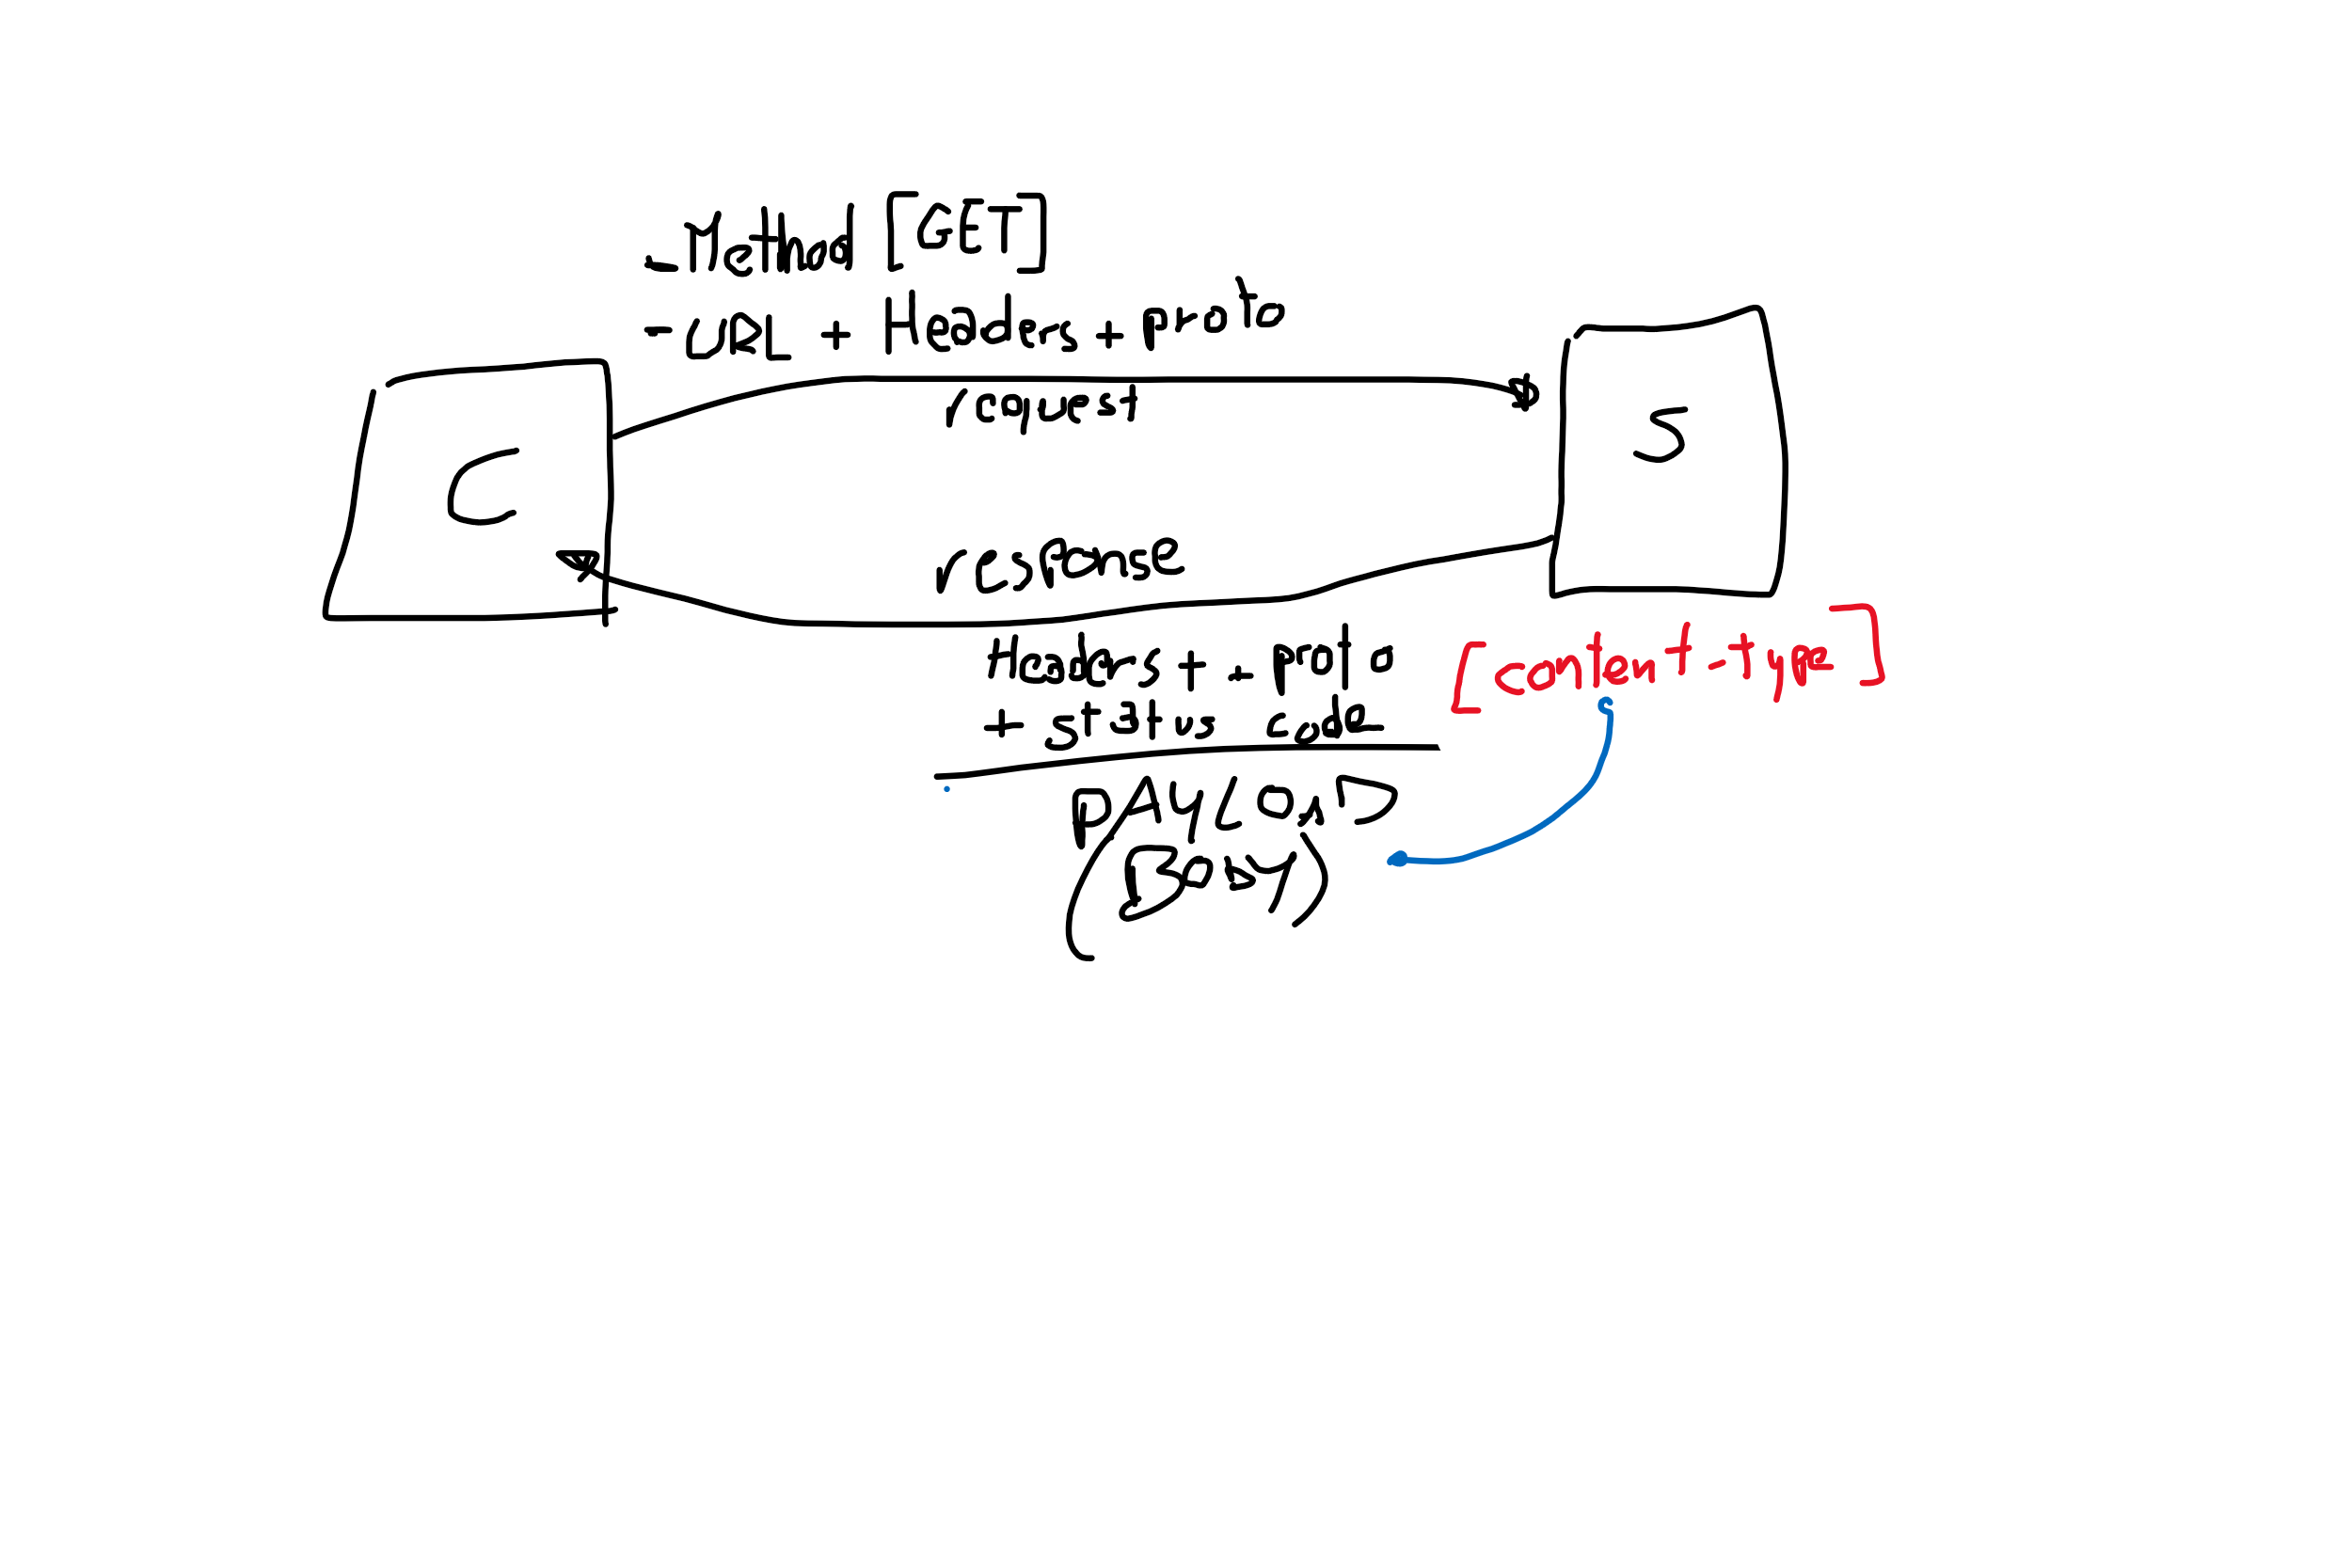 - Method [GET]
- URL + Headers + proto
request
C
S
response
Headers + - proto
+ status code
[content-type]
PAYLOAD
(BODY)